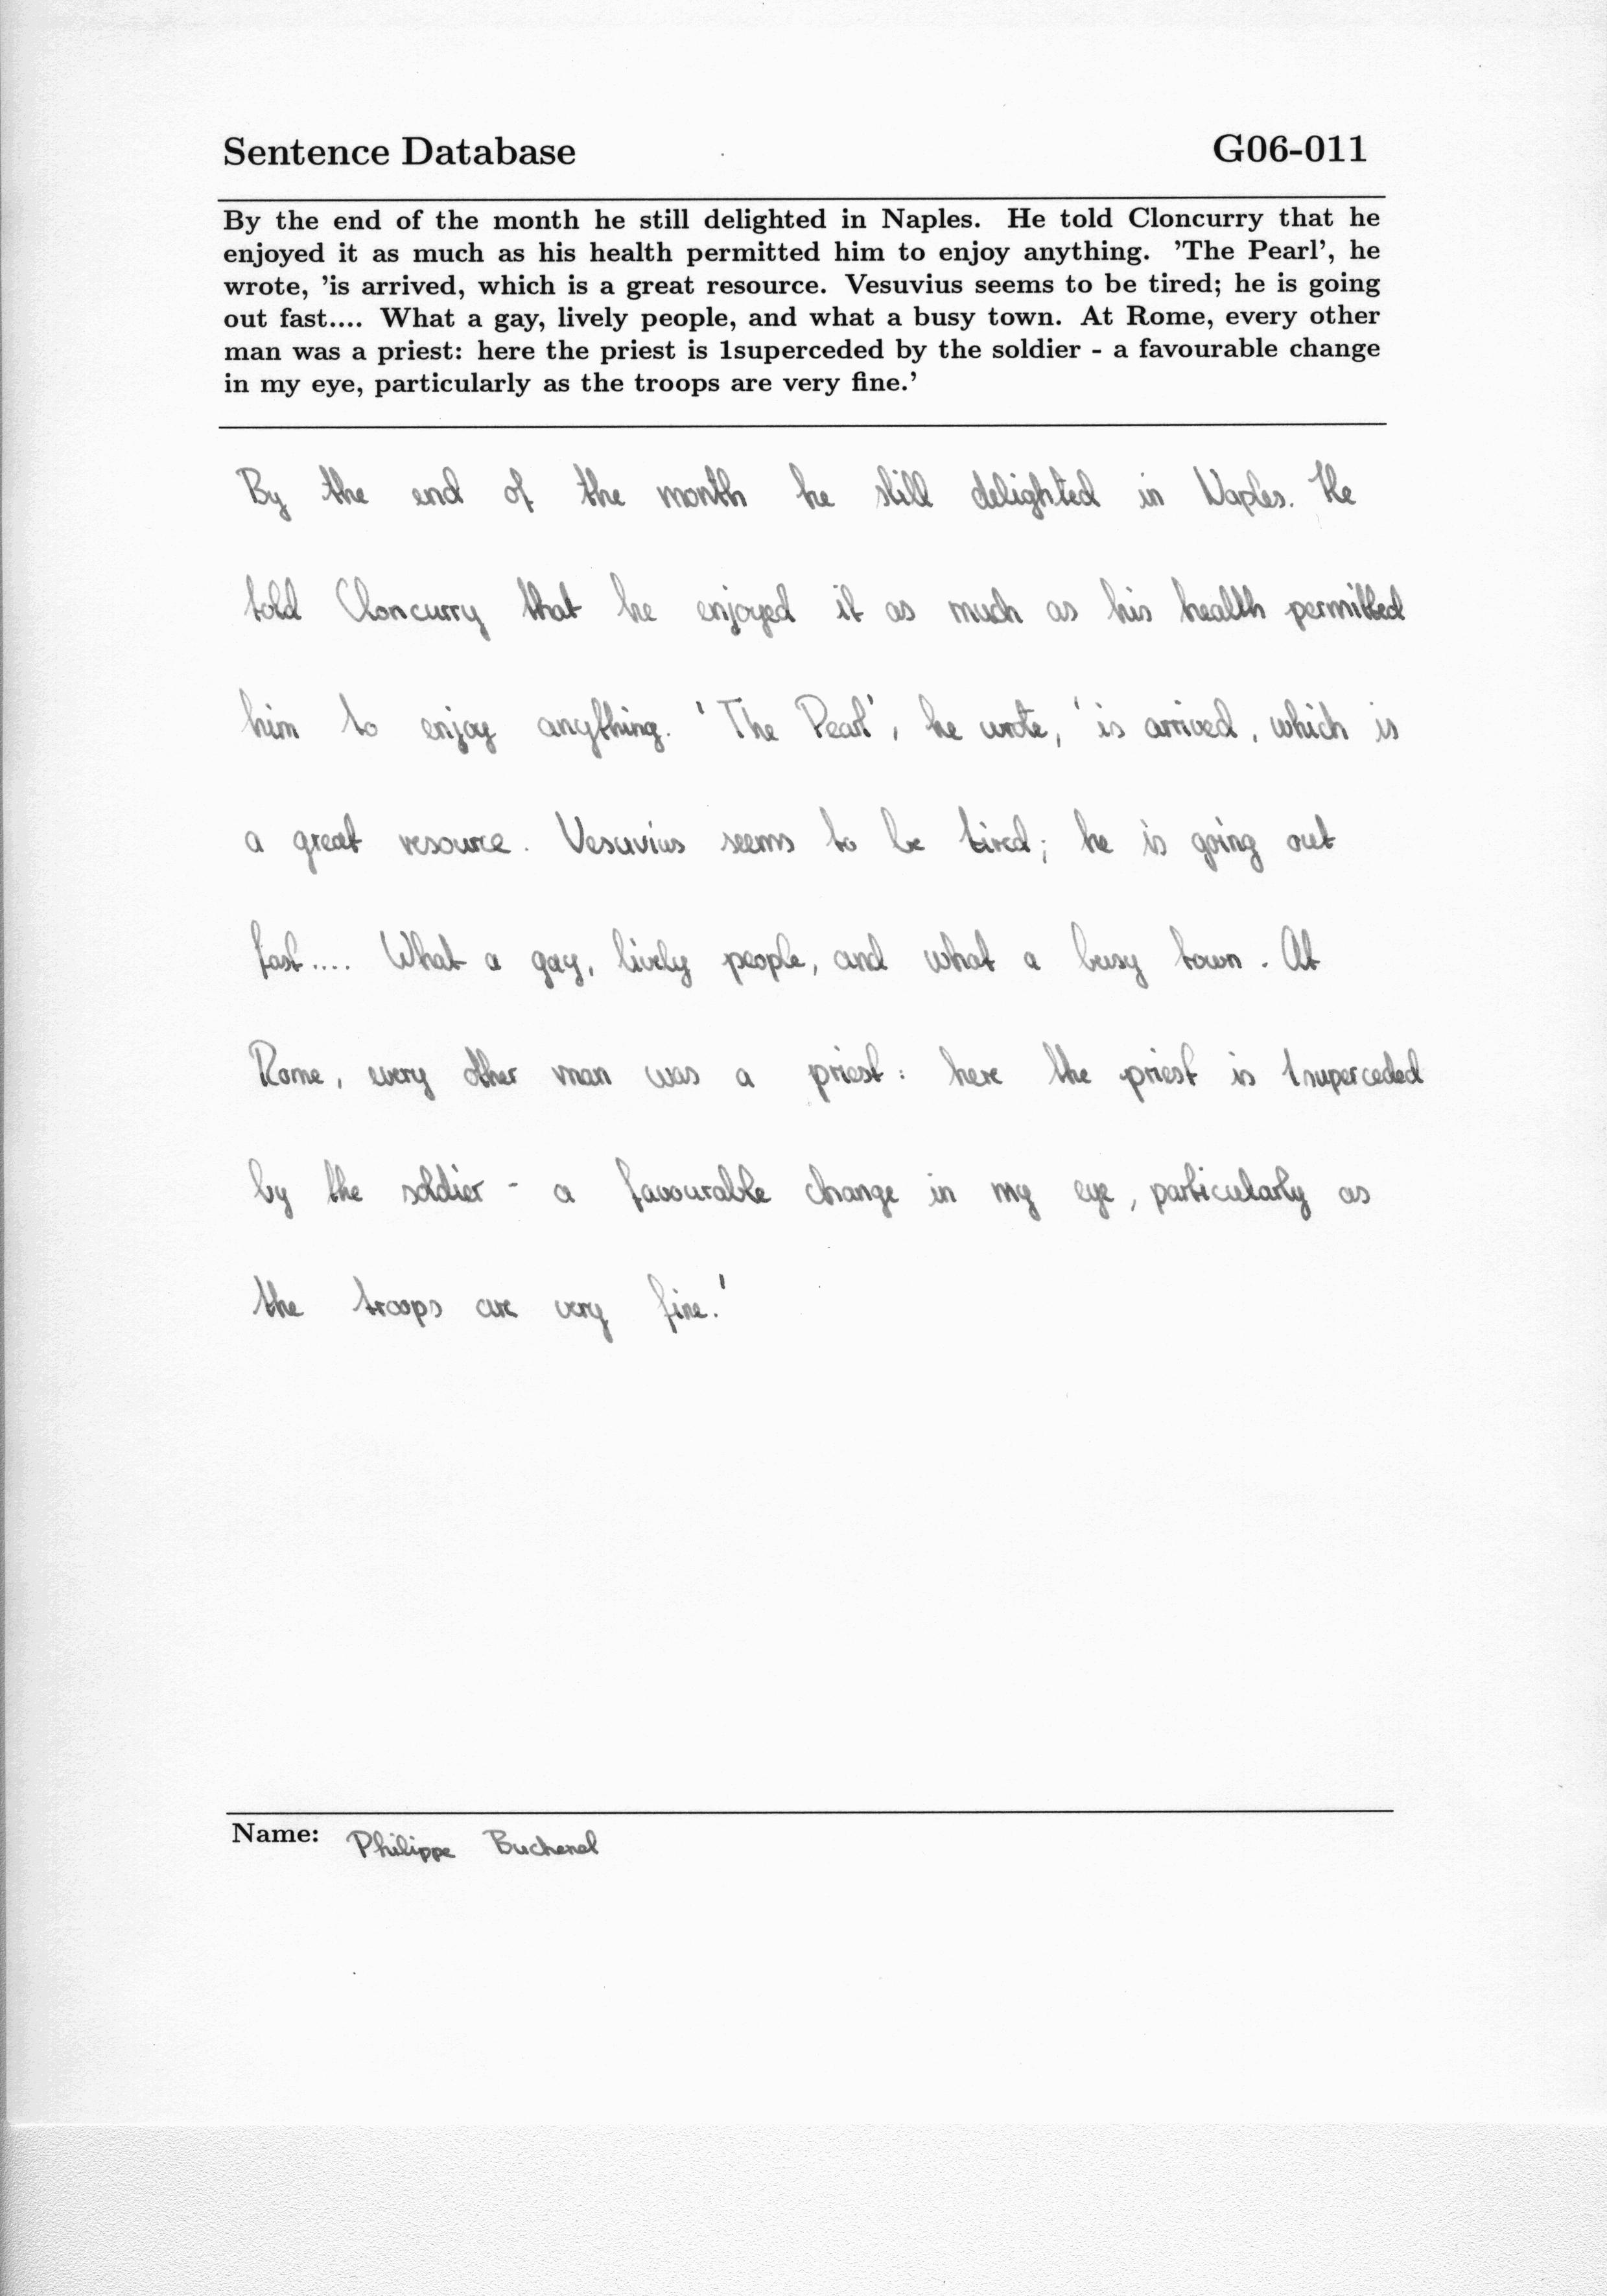 Sentence Database G06-011
By the end of the month he still delighted in Naples. He told Cloncurry that he
enjoyed it as much as his health permitted him to enjoy anything. 'The Pearl', he
wrote, 'is arrived, which is a great resource. Vesuvius seems to be tired; he is going
out fast.... What a gay, lively people, and what a busy town. At Rome, every other
man was a priest: here the priest is 1superceded by the soldier - a favourable change
in my eye, particularly as the troops are very fine.'
By the end of the month he still delighted in Naples. He
told Cloncurry that he enjoyed it as much as his health permitted
him to enjoy anything. 'The Pearl', he wrote, 'is arrived, which is
a great resource. Vesuvius seems to be tired; he is going out
fast.... What a gay, lively people, and what a busy town. At
Rome, every other man was a priest: here the priest is 1superceded
by the soldier - a favourable change in my eye, particularly as
the troops are very fine.'
Name: Philippe Buchenel